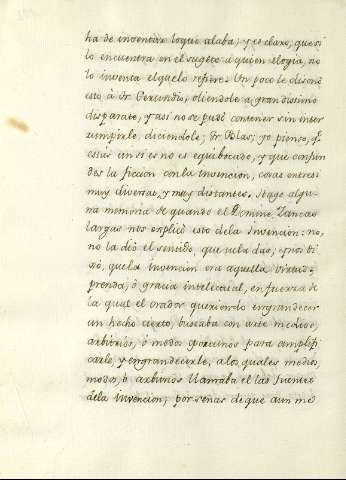 ha de inventar loque alaba; y es claro, que si
lo encuentra en el sugeto à quien elogia, no
lo inventa el que lo refiere. Un poco le disonò
esto à Fr. Gerundio, oliendole a grandissimo
disparate, y asi no se pudo contener sin inter
rumpirle, diciendole; Fr. Blas; yo pienso, q.e
estàs un si es no es equibocado, y que confun
des la ficcion con la invencion, cosas entre si
muy diversas, y muy distantes. Hago algu-
na memoria de quando el Domine Zancas
largas nos explicò esto dela Invencion: no,
no la diò el sentido, que tu la das; y nos di
xò, que la invencion era aquella virtud,
prenda, ò gracia intelectual, en fuerza de
la qual el orador queriendo engrandecer
un hecho cierto, buscaba con arte medios,
arbitrios, ò modos oportunos para amplifi
carle, y engrandecerle, a los quales medios,
modos, ò arbitrios llamaba el las fuentes
dela invencion; por señas de que aun me